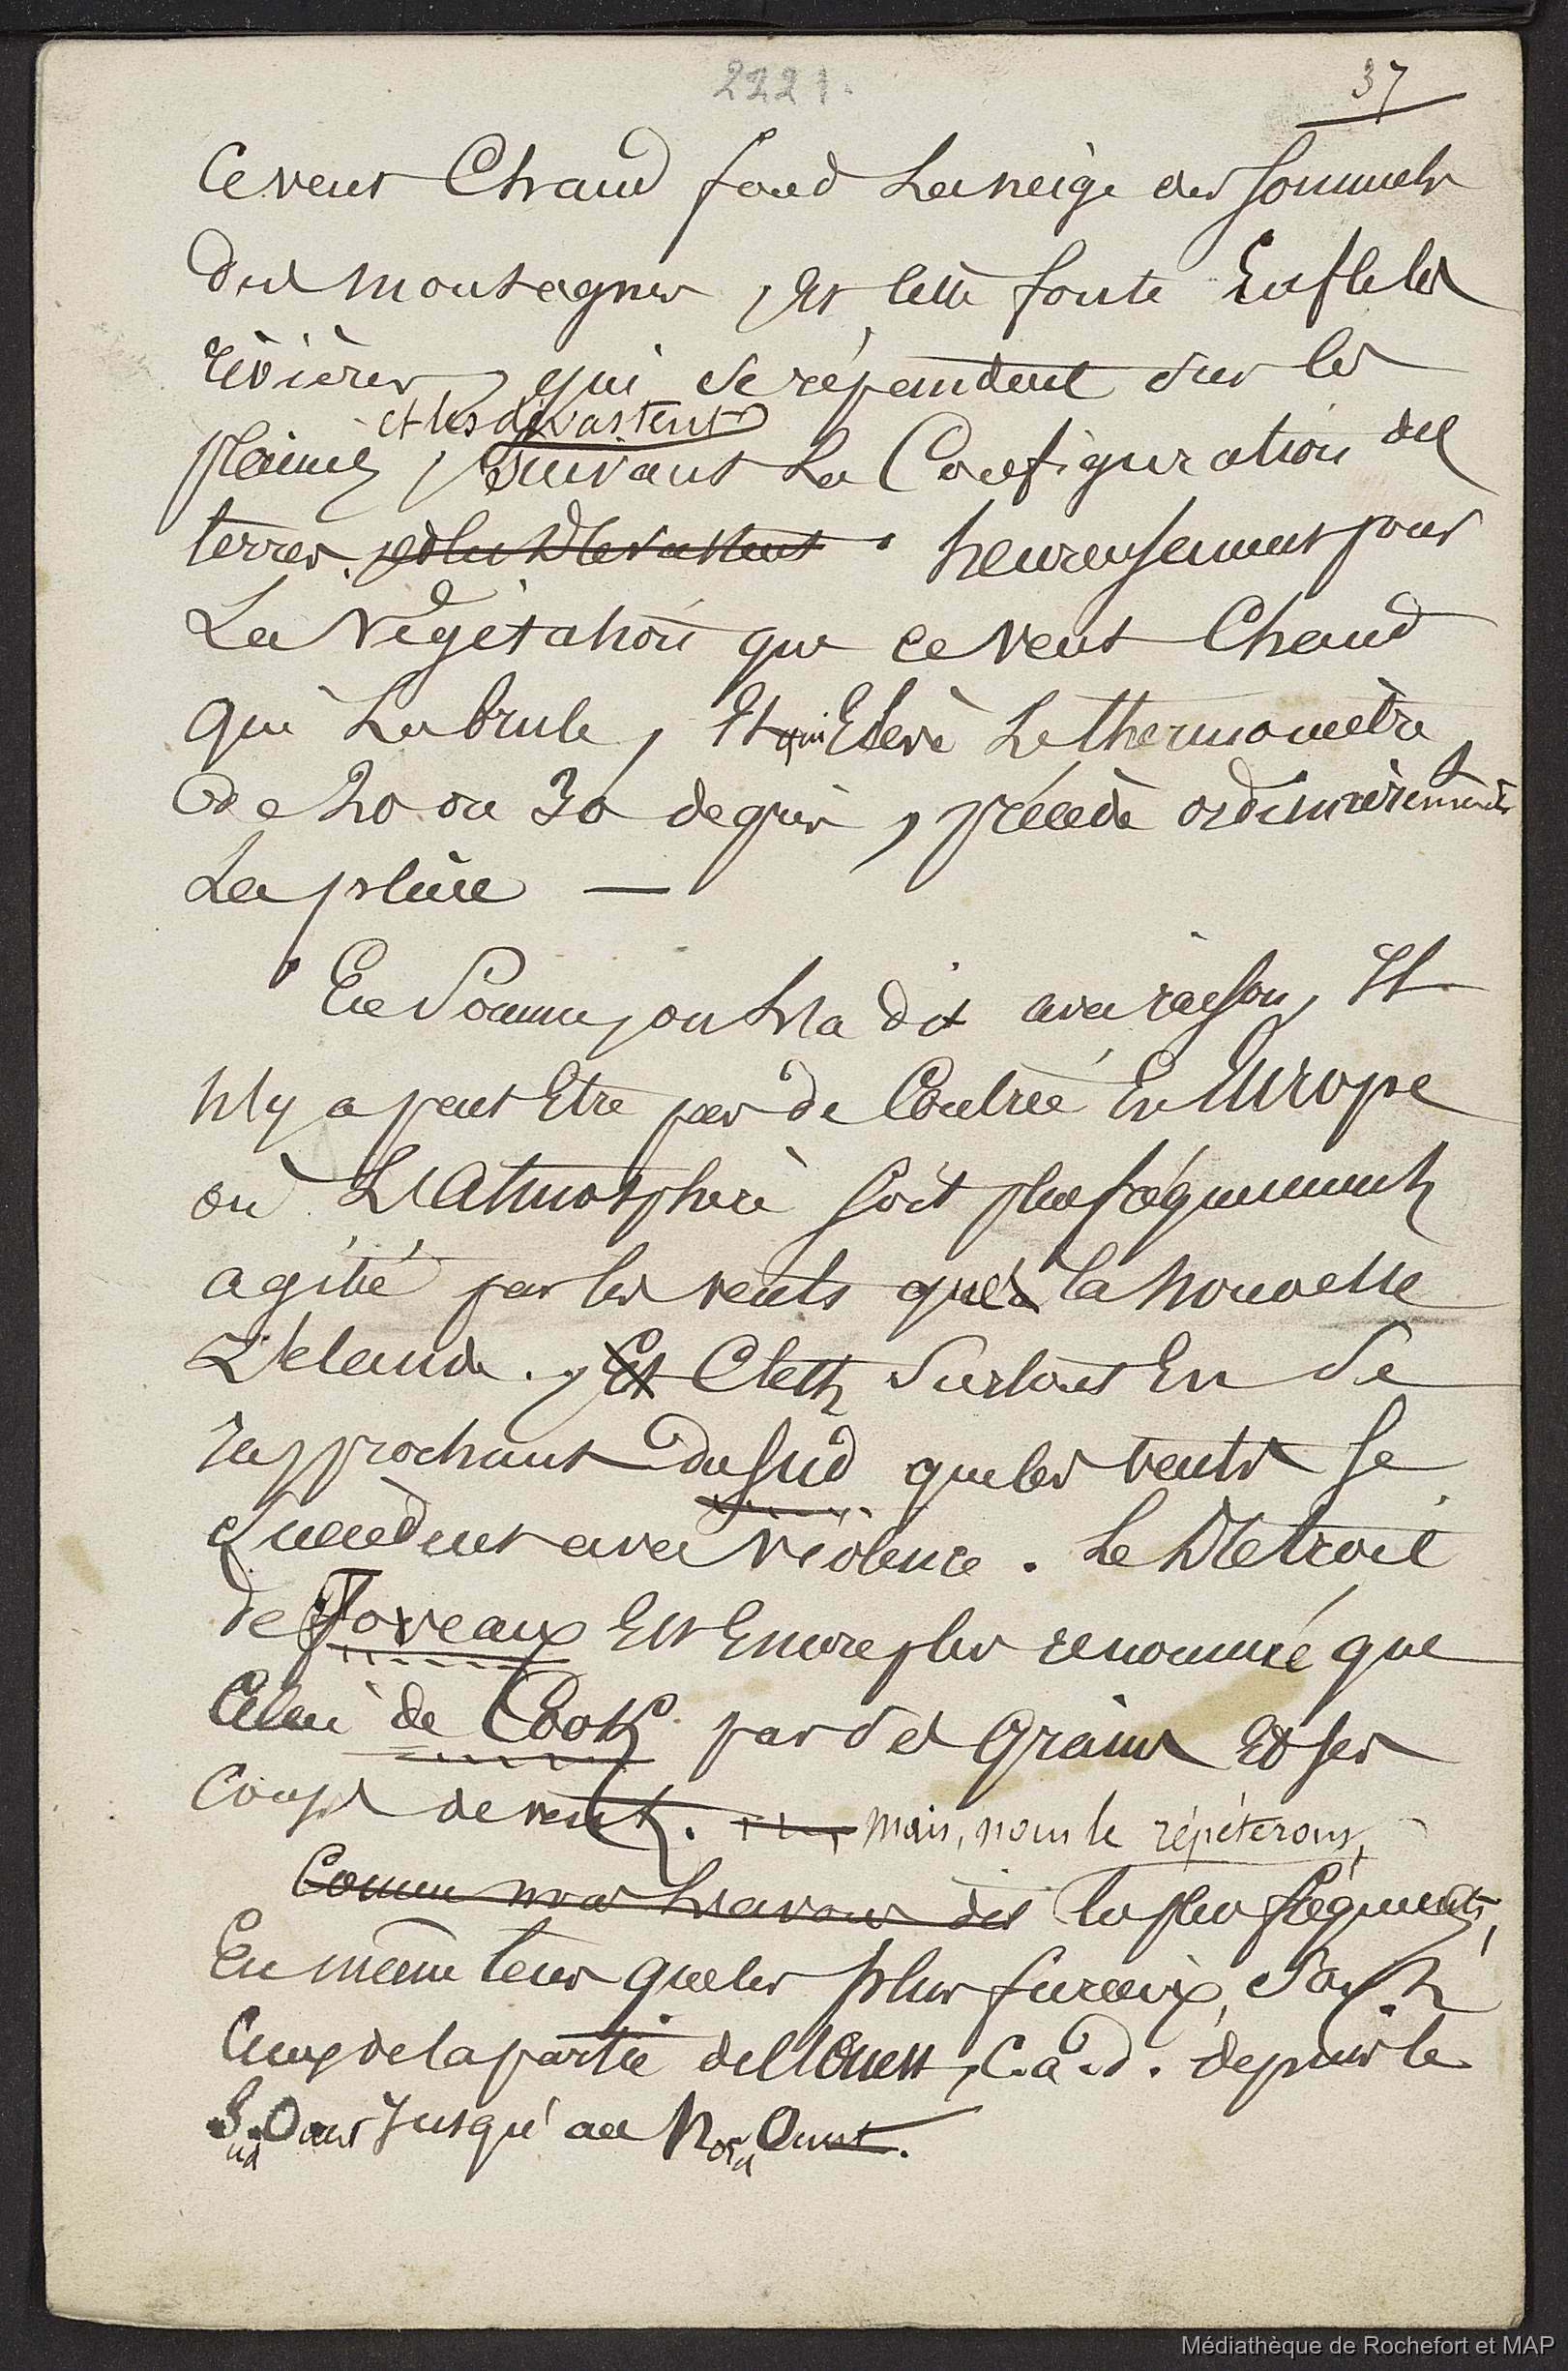 2221.
37
Ce vent Chaud fond La neige des Sommets
des montagnes, Et cette fonte Enfle les
rivières, qui se répandent sur les
et les dévastent
plaines, Suivant La Configuration des
terres, et les Dévastent. heureusement pour
La Végétation que ce Vent Chaud
qui La brule, Et qui Elève Le thermomètre
de 20 ou 30 degrés, précède ordinairement
La pluie —
En Somme, on L'a dit avec raison, Il
N'y a peut Etre pas de Contrée En Europe
où L'Atmosphère soit plus fréquemment
agitée par les vents que la Nouvelle
Zélande. Et C'est surtout En se
rapprochant du Sud que les vents se
succèdent avec Violence. Le Détroit
de Foveaux Est Encore plus renommé que
Celui de Cook par ses Grains Et ses
Coups de vent. mais, nous le répéterons,
Comme nous L'avons dit les plus fréquents,
En même tems que les plus furieux, Sont
Ceux de la partie de l'Ouest, C.à.d. depuis le
Sud Ouest Jusqu'au Nord Ouest.
Médiathèque de Rochefort et MAP